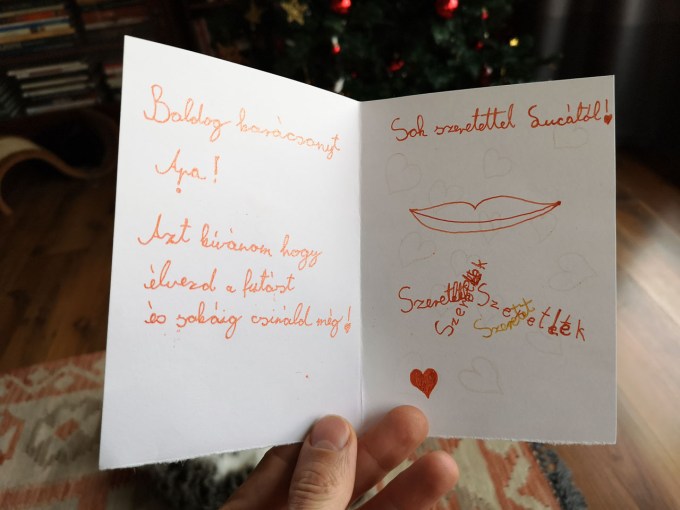 Boldog karácsonyt
Apa!
Azt kívánom hogy
élvezd a futást
és sokáig csináld még!
Sok szeretettel Lucától!
Szeretlek
Szeretlek
Szeretet